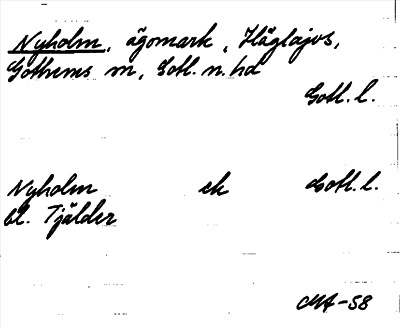 Nyholm, ägomark, Häglajvs,
Gothems sn, Gotl. n. hd
Gotl. l.
Nyholm ek Gotl. l.
bl. Tjälder
MA-58